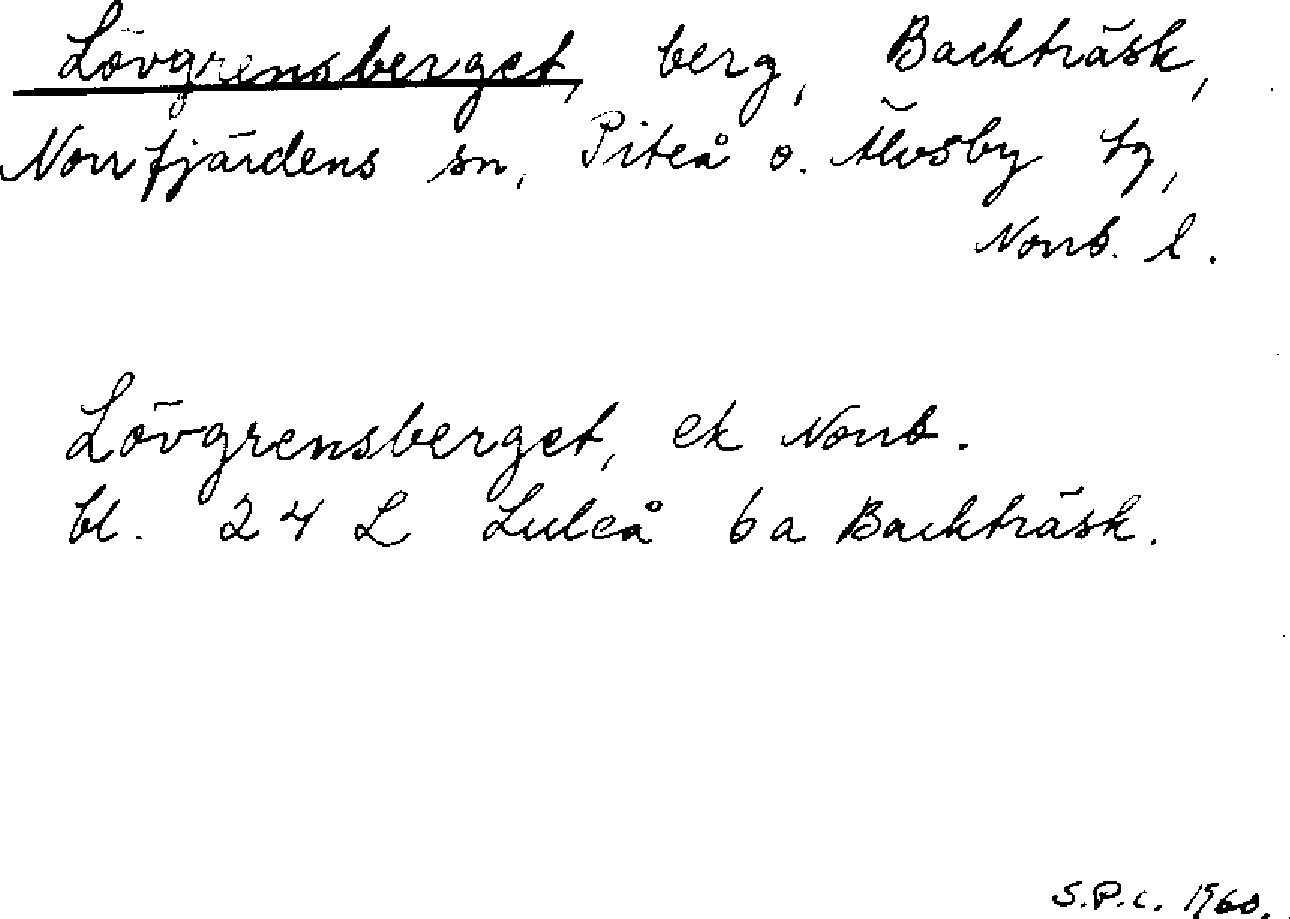 Lövgrensberget, berg, Backträsk,
Norrfjärdens sn, Piteå o. Älvsby tg,
Norrb. l.
Lövgrensberget, ek Norrb.
bl. 24 L Luleå 6a Backträsk.
S.P.C. 1960.